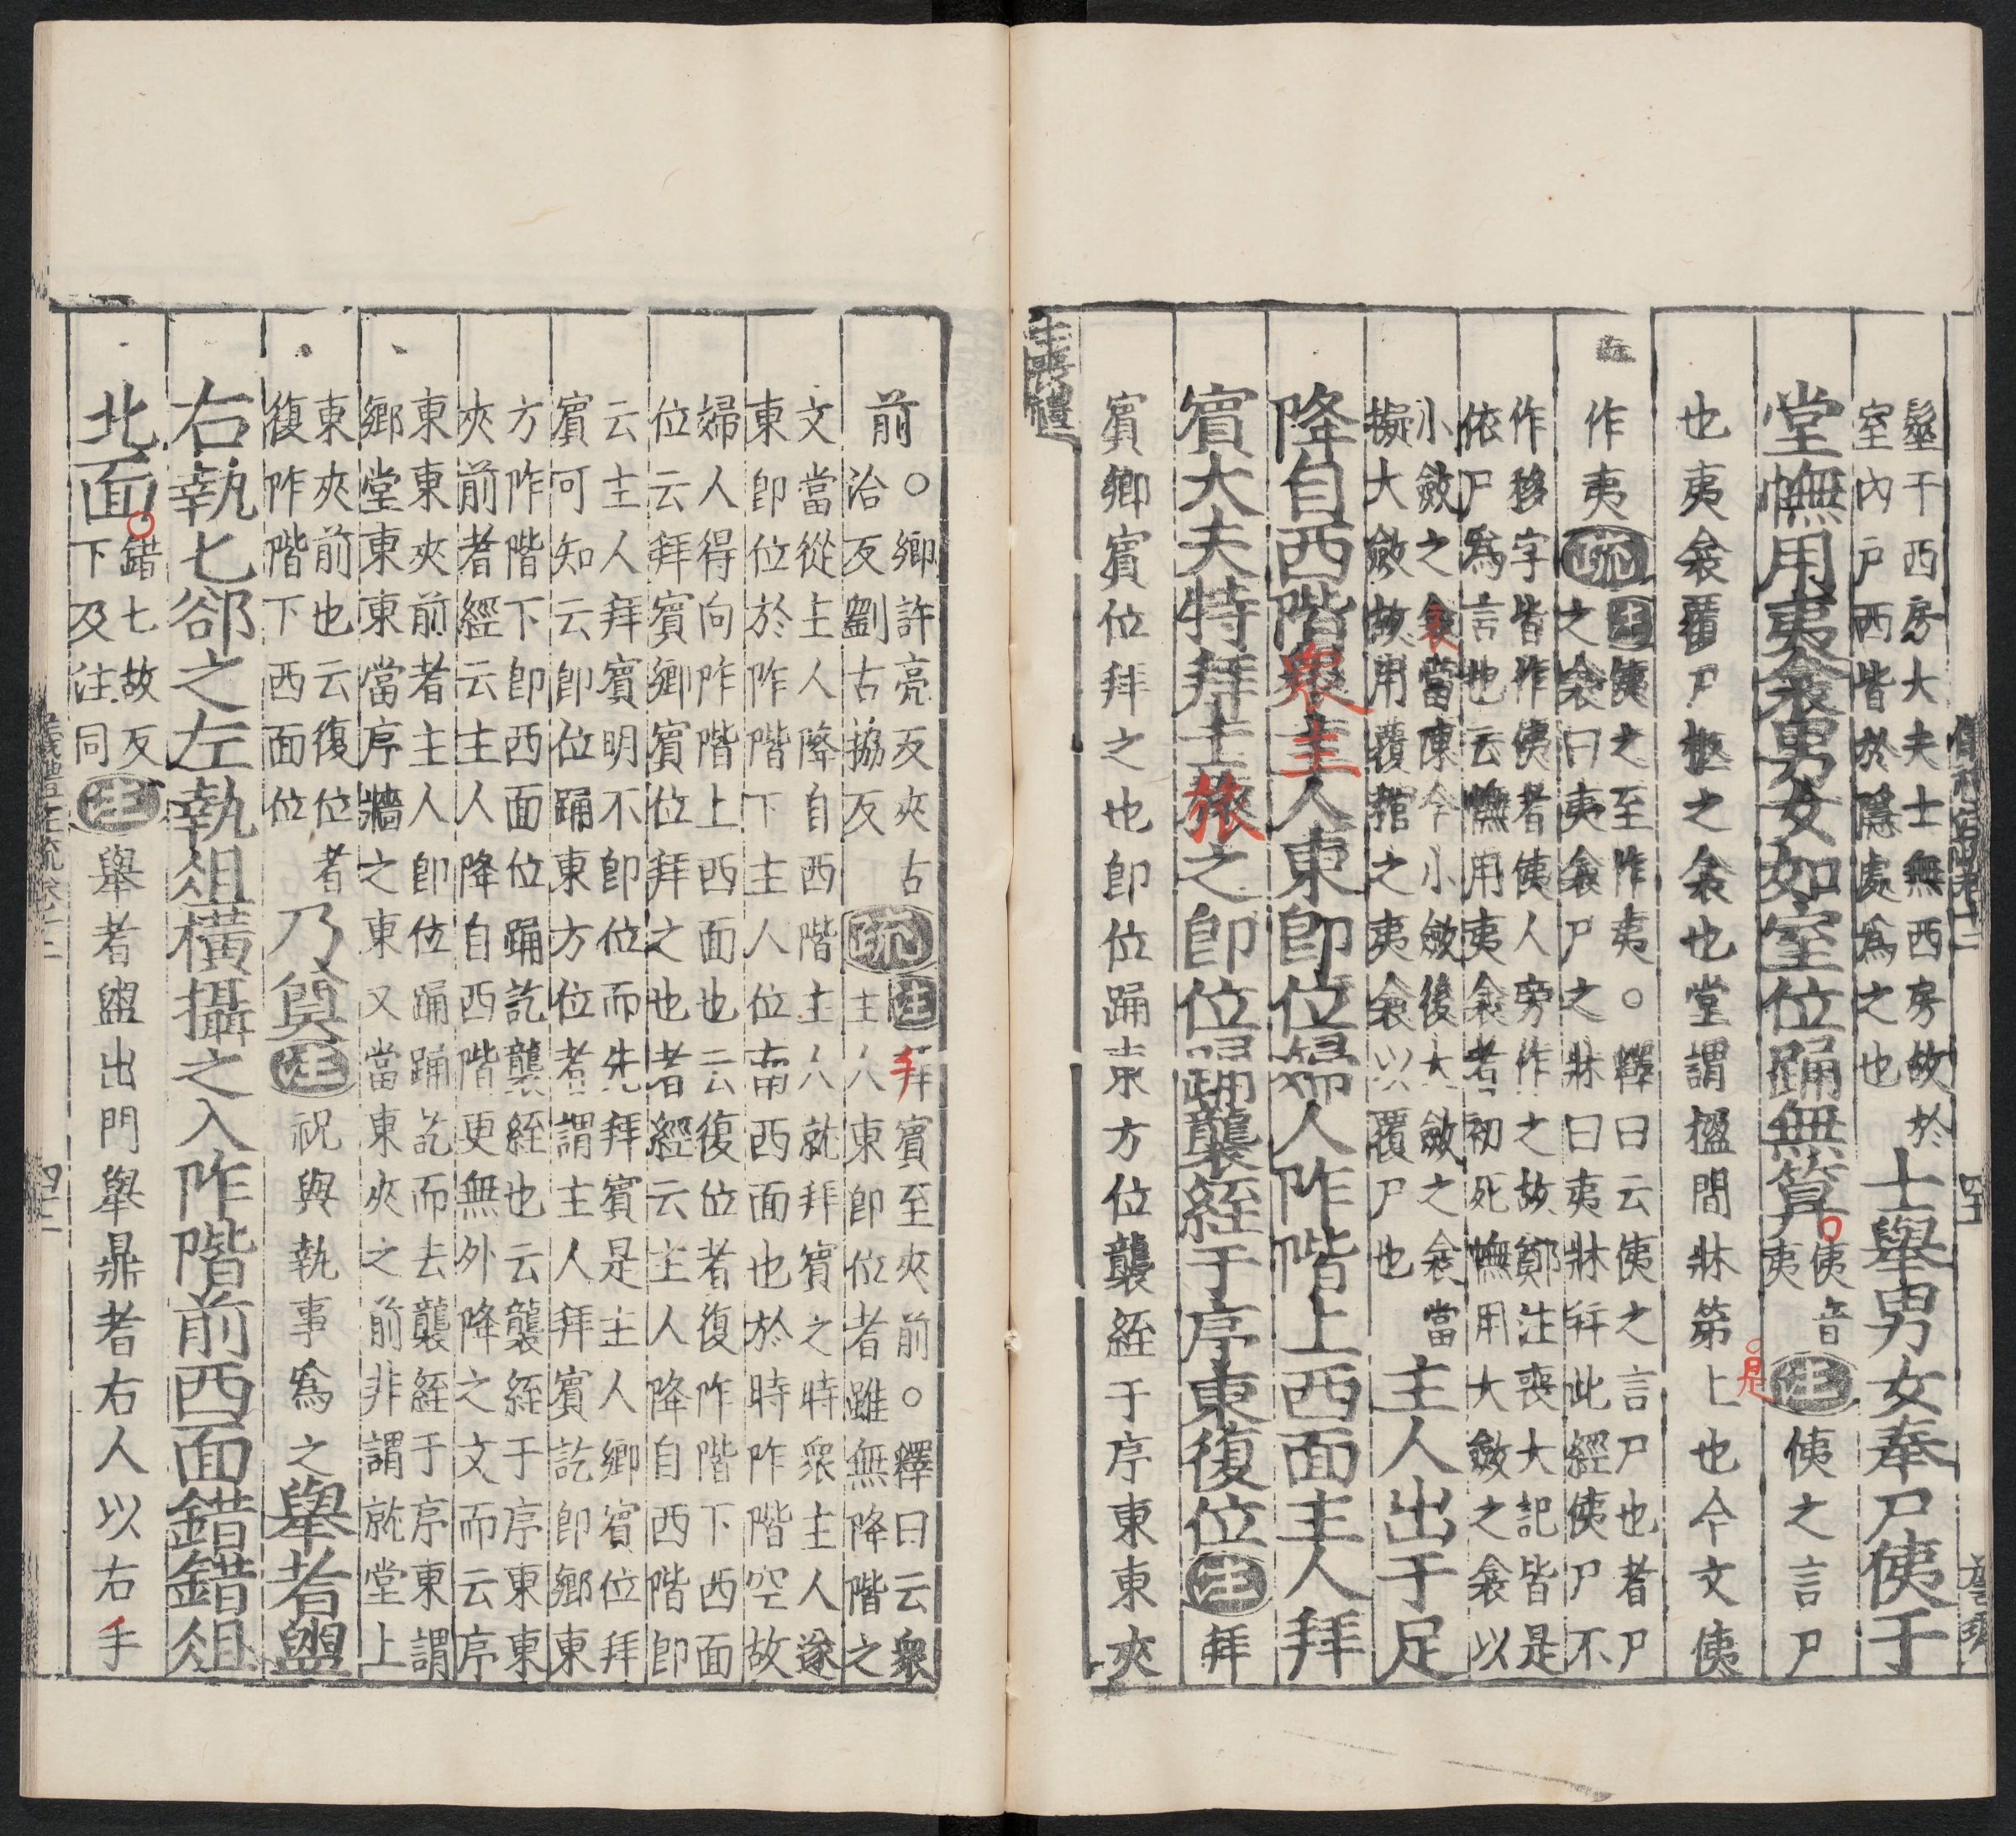 髽于西房大夫士無西房故於
室內戶西皆於隱處爲之也
士舉男女奉尸侇于
堂幠用夷衾男女如室位踊無筭
侇音
夷
注
侇之言尸
也夷衾覆尸柩之衾也堂謂楹間牀笫上也今文侇
是
作夷
疏
注侇之至作夷○釋曰云侇之言尸也者尸
之衾曰夷衾尸之牀曰夷牀并此經侇尸不
作移字皆作侇者侇人旁作之故鄭注喪大記皆是
依尸爲言也云幠用夷衾者初死幠用大斂之衾以
小斂之衾當陳今小斂後大斂之衾當
擬大斂故用覆棺之夷衾以覆尸也
主人出于足
降自西階衆主人東即位婦人阼階上西面主人拜
賓大夫特拜士旅之即位踊襲絰于序東復位
注
拜
賓鄉賓位拜之也即位踊東方位襲絰于序東東夾
士喪禮
前○
鄉許亮反夾古
洽反劉古協反
疏
注拜賓至夾前○釋曰云衆
主人東即位者雖無降階之
文當從主人降自西階主人就拜賓之時衆主人遂
東即位於阼階下主人位南西面也於時阼階空故
婦人得向阼階上西面也云復位者復阼階下西面
位云拜賓鄉賓位拜之也者經云主人降自西階即
云主人拜賓明不即位而先拜賓是主人鄉賓位拜
賓可知云即位踊東方位者謂主人拜賓訖即鄉東
方阼階下即西面位踊訖襲絰也云襲絰于序東東
夾前者經云主人降自西階更無外降之文而云序
東東夾前者主人即位踊踊訖而去襲絰于序東謂
鄉堂東東當序牆之東又當東夾之前非謂就堂上
東夾前也云復位者
復阼階下西面位
乃奠
注
祝與執事爲之
舉者盥
右執匕卻之左執俎橫攝之入阼階前西面錯錯俎
北面
錯七故反
下及注同
注
舉者盥出門舉鼎者右人以右手
儀禮注疏卷十二
四十二